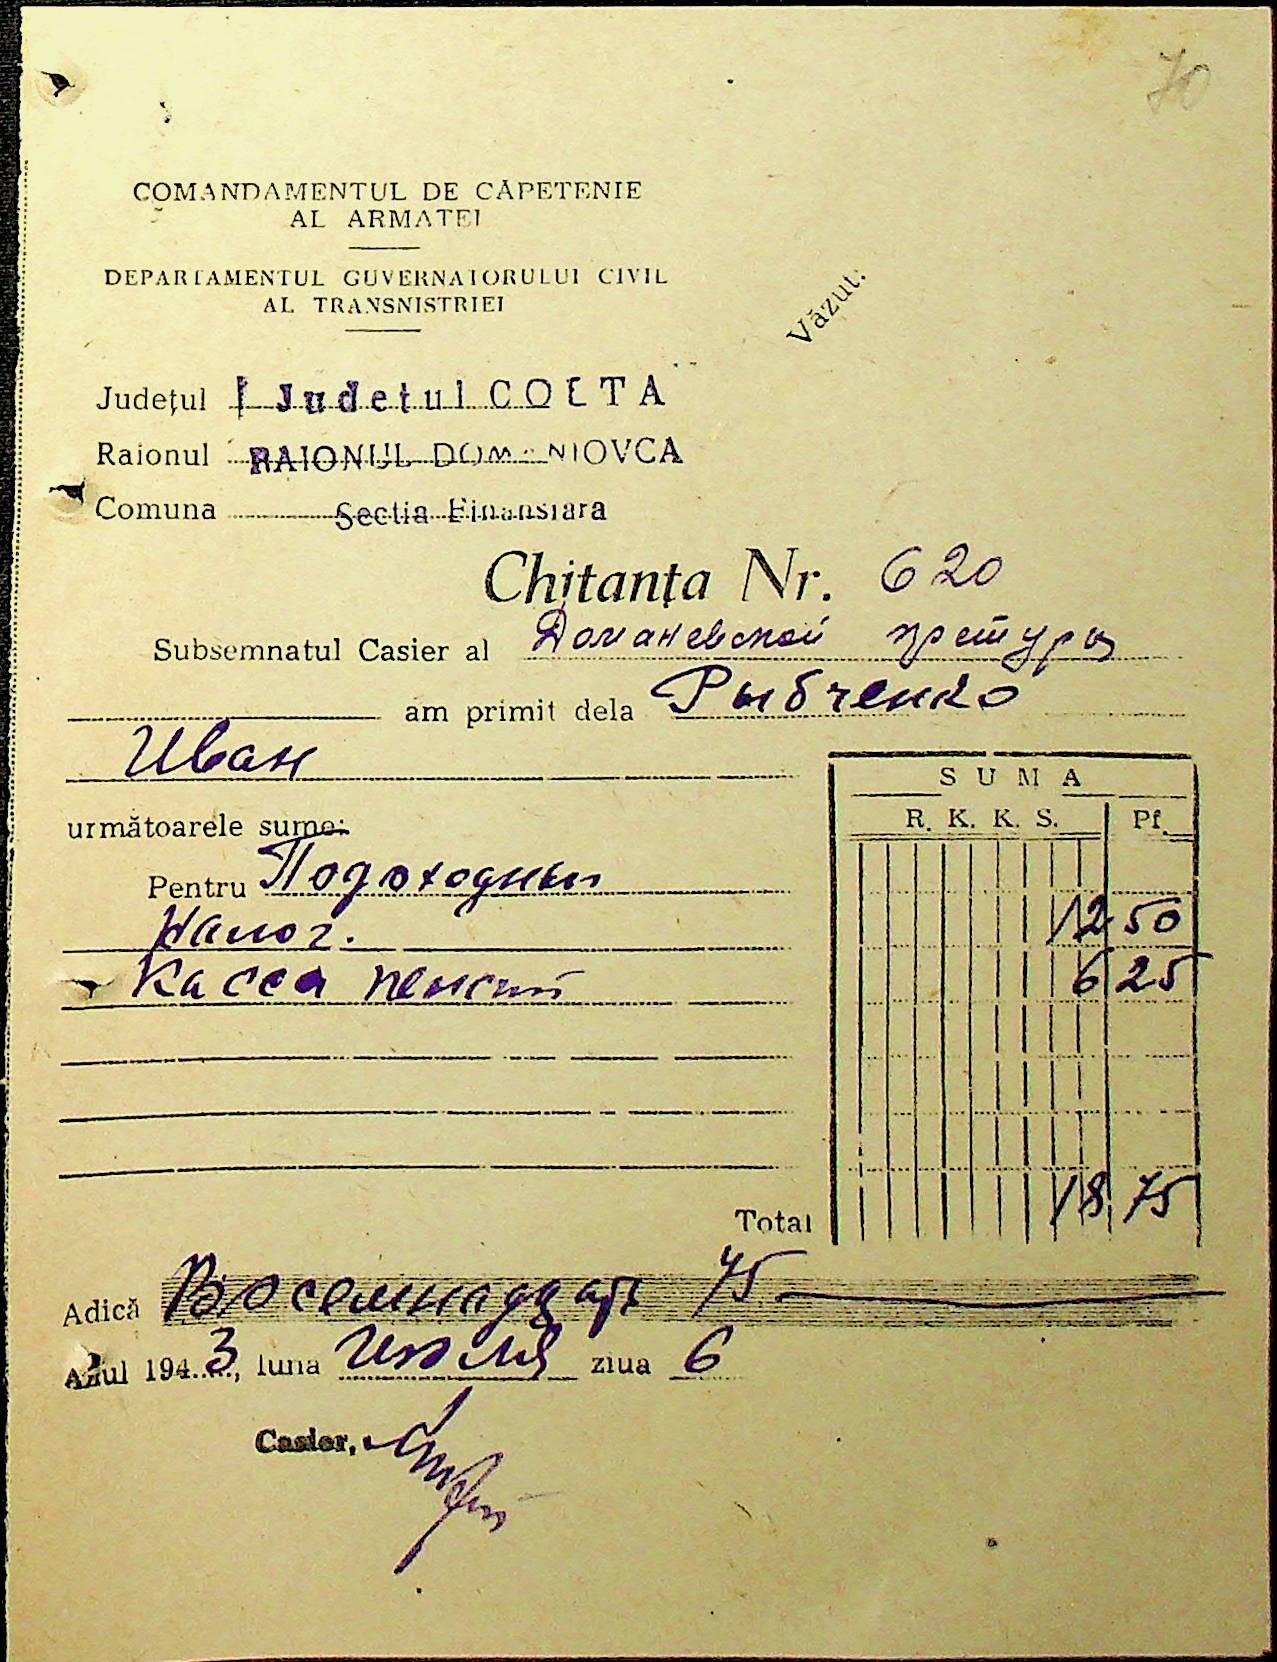 70
COMANDAMENTUL DE CĂPETENIE
AL ARMATEI
DEPARTAMENTUL GUVERNATORULUI CIVIL
AL TRANSNISTRIEI
Văzut:
Județul Judetul COLTA
Raionul RAIONUL DOMANIOVCA
Comuna Sectia Finansiara
Chitanța Nr. 620
Subsemnatul Casier al Доманевской претуры
am primit dela Рыбченко
Иван
SUMA
următoarele sume:
R. K. K. S. Pf.
Pentru Подоходный
налог. 12 50
Касса пенсий 6 25
Total 18 75
Adică Восемнадцать 75
Anul 1943, luna Июля ziua 6
Casier,